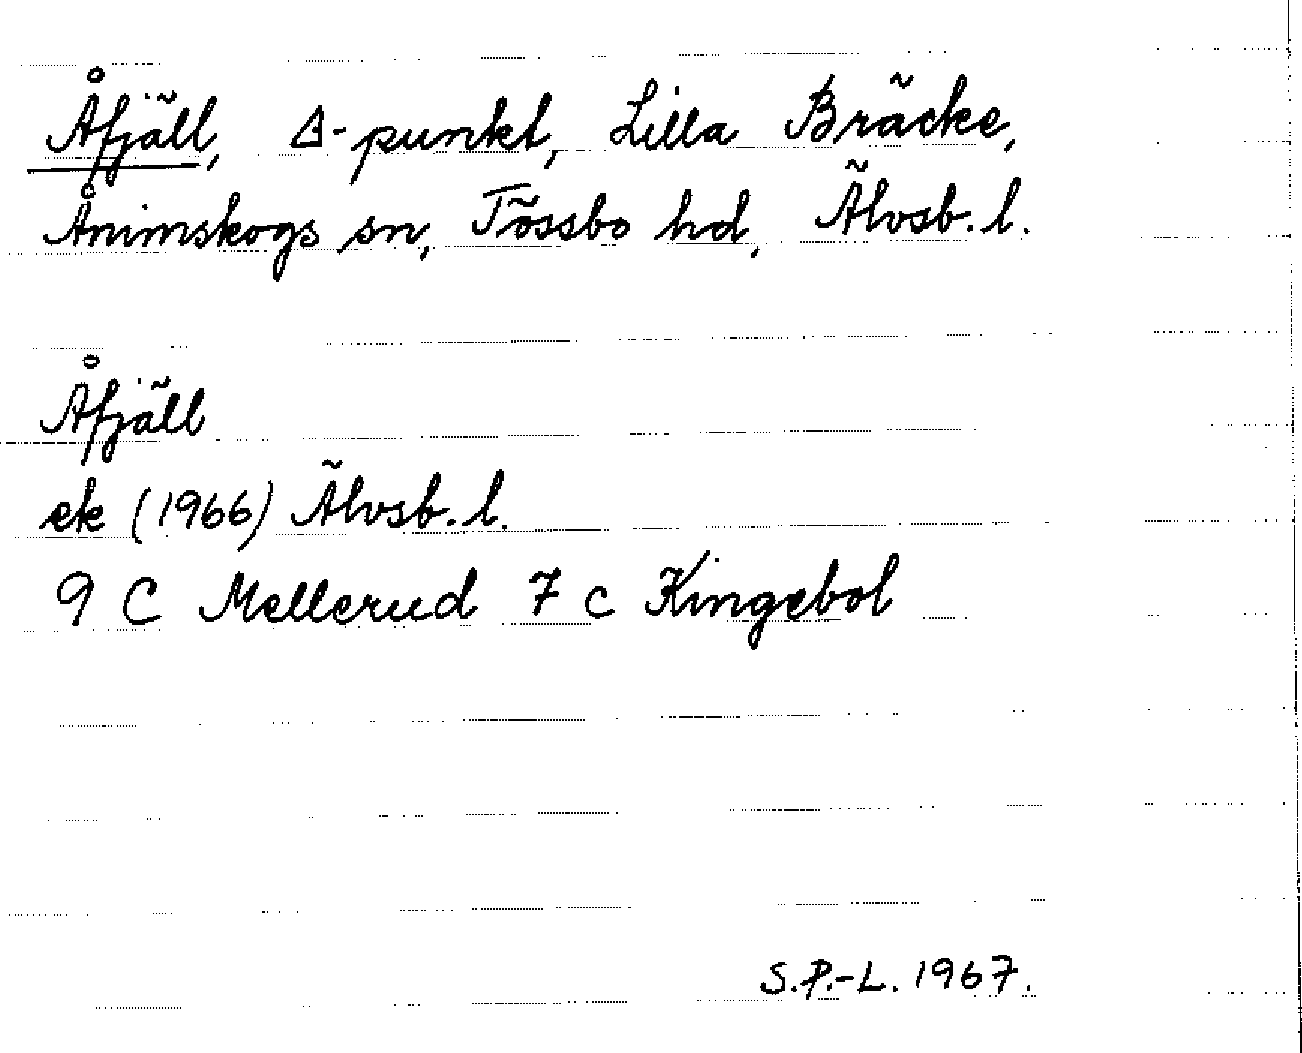 Åfjäll, Δ-punkt, Lilla Bräcke,
Ånimskogs sn, Tössbo hd, Älvsb. l.
Åfjäll
ek (1966) Älvsb. l.
9 C Mellerud 7 c Kingebol
S.P.-L. 1967.